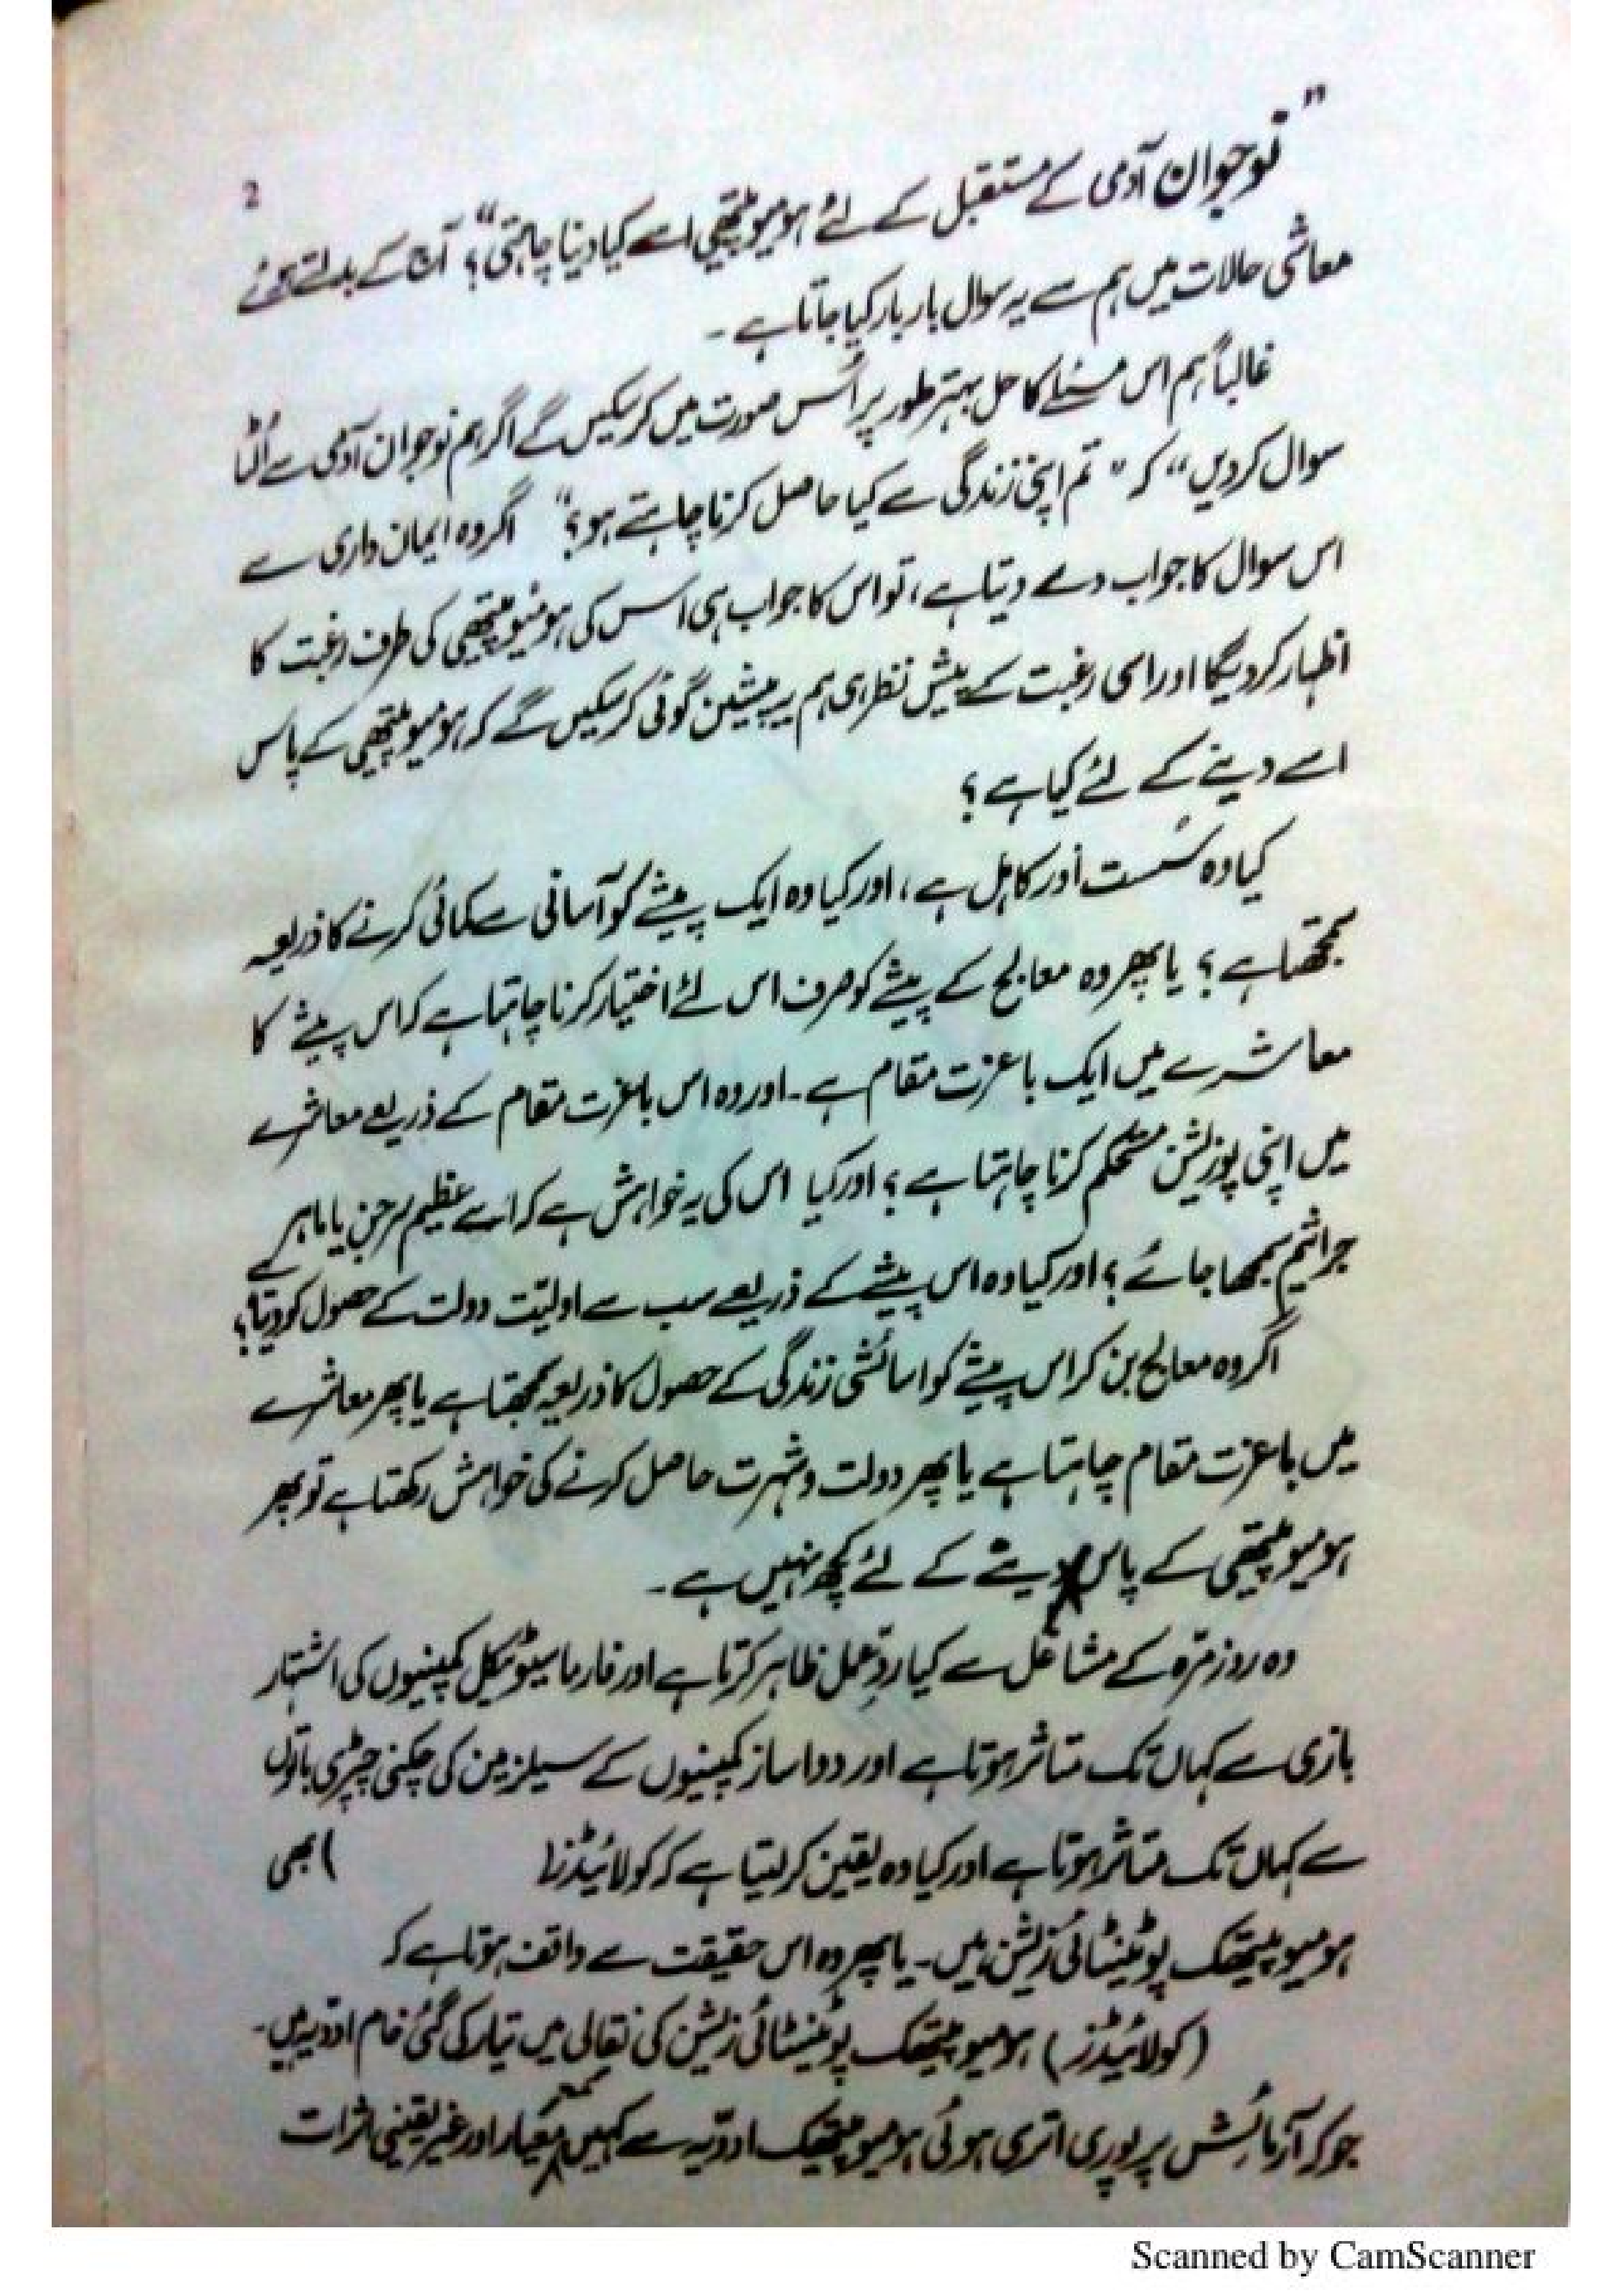 2
"نوجوان آدمی کے مستقبل کے لئے ہومیوپیتھی اسے کیا دینا چاہتی"؟ آج کے بدلتے ہوئے
معاشی حالات میں ہم سے یہ سوال بار بار کیا جاتا ہے۔
غالباً ہم اس مسئلے کا حل بہتر طور پر اُس صورت میں کر سکیں گے اگر ہم نوجوان آدمی سے اُلٹا
سوال کر دیں“ کہ " تم اپنی زندگی سے کیا حاصل کرنا چاہتے ہو؟" اگر وہ ایمان داری سے
اس سوال کا جواب دے دیتا ہے، تو اس کا جواب ہی اس کی ہومیوپیتھی کی طرف رغبت کا
اظہار کر دیگا اور اسی رغبت کے پیش نظر ہی ہم یہ پیشین گوئی کر سکیں گے کہ ہومیوپیتھی کے پاس
اسے دینے کے لئے کیا ہے؟
کیا وہ سُست اور کاہل ہے، اور کیا وہ ایک پیشے کو آسانی سے کمائی کرنے کا ذریعہ
سمجھتا ہے؟ یا پھر وہ معالج کے پیشے کو صرف اس لئے اختیار کرنا چاہتا ہے کہ اس پیشے کا
معاشرے میں ایک باعزت مقام ہے۔ اور وہ اس باعزت مقام کے ذریعے معاشرے
میں اپنی پوزیشن مستحکم کرنا چاہتا ہے؟ اور کیا اس کی یہ خواہش ہے کہ اسے عظیم سرجن یا ماہر
جراثیم سمجھا جائے؟ اور کیا وہ اس پیشے کے ذریعے سب سے اولیّت دولت کے حصول کو دیتا؟
اگر وہ معالج بن کر اس پیشے کو اسائشی زندگی کے حصول کا ذریعہ سمجھتا ہے یا پھر معاشرے
میں باعزت مقام چاہتا ہے یا پھر دولت و شہرت حاصل کرنے کی خواہش رکھتا ہے تو پھر
ہومیوپیتھی کے پاس دینے کے لئے کچھ نہیں ہے۔
وہ روزمرّہ کے مشاغل سے کیا ردِّعمل ظاہر کرتا ہے اور فارماسیوٹیکل کمپنیوں کی اشتہار
بازی سے کہاں تک متاثر ہوتا ہے اور دوا ساز کمپنیوں کے سیلز مین کی چکنی چپڑی باتوں
سے کہاں تک متاثر ہوتا ہے اور کیا وہ یقین کر لیتا ہے کہ کولائیڈز ( ) بھی
ہومیوپیتھک پوٹینٹائی زیشن ہیں۔ یا پھر وہ اس حقیقت سے واقف ہوتا ہے کہ
(کولائیڈز) ہومیوپیتھک پوٹینٹائی زیشن کی نقالی میں تیار کی گئی خام ادویہ ہیں۔
جو کہ آزمائش پر پوری اتری ہوئی ہومیوپیتھک ادویہ سے کہیں کم معیار اور غیر یقینی اثرات
Scanned by CamScanner